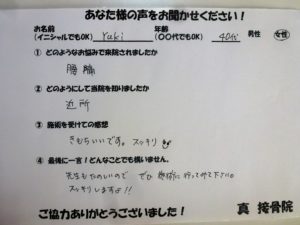 あなた様の声をお聞かせください！
お名前 年齢
(イニシャルでもOK) Yuki (〇〇代でもOK) 40代 男性 女性
① どのようなお悩みで来院されましたか
腰痛
② どのようにして当院を知りましたか
近所
③ 施術を受けての感想
きもちいいです。スッキリ
④ 最後に一言！どんなことでも構いません。
先生もたのしいので ぜひ 施術に行ってみて下さい。
スッキリしますよ!!
ご協力ありがとうございました！ 真 接骨院